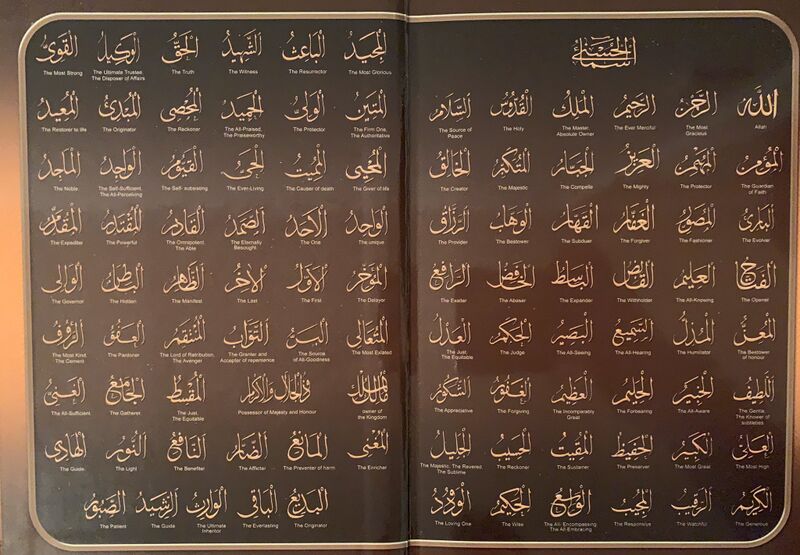 أسماء الله الحسنى
الله
Allah
الرحمن
The Most
Gracious
الرحيم
The Ever Merciful
الملك
The Master,
Absolute Owner
القدوس
The Holy
السلام
The Source of
Peace
المؤمن
The Guardian
of Faith
المهيمن
The Protector
العزيز
The Mighty
الجبار
The Compella
المتكبر
The Majestic
الخالق
The Creator
البارئ
The Evolver
المصور
The Fashioner
الغفار
The Forgiver
القهار
The Subduer
الوهاب
The Bestower
الرزاق
The Provider
الفتاح
The Opener
العليم
The All-Knowing
القابض
The Withholder
الباسط
The Expander
الخافض
The Abaser
الرافع
The Exalter
المعز
The Bestower
of honour
المذل
The Humiliator
السميع
The All-Hearing
البصير
The All-Seeing
الحكم
The Judge
العدل
The Just,
The Equitable
اللطيف
The Gentle,
The Knower of
subtleties
الخبير
The All-Aware
الحليم
The Forbearing
العظيم
The Incomparably
Great
الغفور
The Forgiving
الشكور
The Appreciative
العلي
The Most High
الكبير
The Most Great
الحفيظ
The Preserver
المقيت
The Sustainer
الحسيب
The Reckoner
الجليل
The Majestic, The Revered,
The Sublime
الكريم
The Generous
الرقيب
The Watchful
المجيب
The Responsive
الواسع
The All- Encompassing
The All-Embracing
الحكيم
The Wise
الودود
The Loving One
المجيد
The Most Glorious
الباعث
The Resurrector
الشهيد
The Witness
الحق
The Truth
الوكيل
The Ultimate Trustee,
The Disposer of Affairs
القوي
The Most Strong
المتين
The Firm One,
The Authoritative
الولي
The Protector
الحميد
The All-Praised,
The Praiseworthy
المحصي
The Reckoner
المبدئ
The Originator
المعيد
The Restorer to life
المحيي
The Giver of life
المميت
The Causer of death
الحي
The Ever-Living
القيوم
The Self- subsisting
الواجد
The Self-Sufficient,
The All-Perceiving
الماجد
The Noble
الواحد
The unique
الأحد
The One
الصمد
The Eternally
Besought
القادر
The Omnipotent,
The Able
المقتدر
The Powerful
المقدم
The Expediter
المؤخر
The Delayer
الأول
The First
الآخر
The Last
الظاهر
The Manifest
الباطن
The Hidden
الوالي
The Governor
المتعالي
The Most Exlated
البر
The Source
of All-Goodness
التواب
The Granter and
Accepter of repentance
المنتقم
The Lord of Retribution,
The Avenger
العفو
The Pardoner
الرؤوف
The Most Kind,
The Clement
مالك الملك
owner of
the Kingdom
ذو الجلال والإكرام
Possessor of Majesty and Honour
المقسط
The Just,
The Equitable
الجامع
The Gatherer
الغني
The All-Sufficient
المغني
The Enricher
المانع
The Preventer of harm
الضار
The Afflicter
النافع
The Benefiter
النور
The Light
الهادي
The Guide
البديع
The Originator
الباقي
The Everlasting
الوارث
The Ultimate
Inheritor
الرشيد
The Guide
الصبور
The Patient